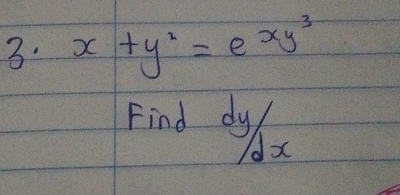 3. x + y² = e^{xy³}
Find dy/dx